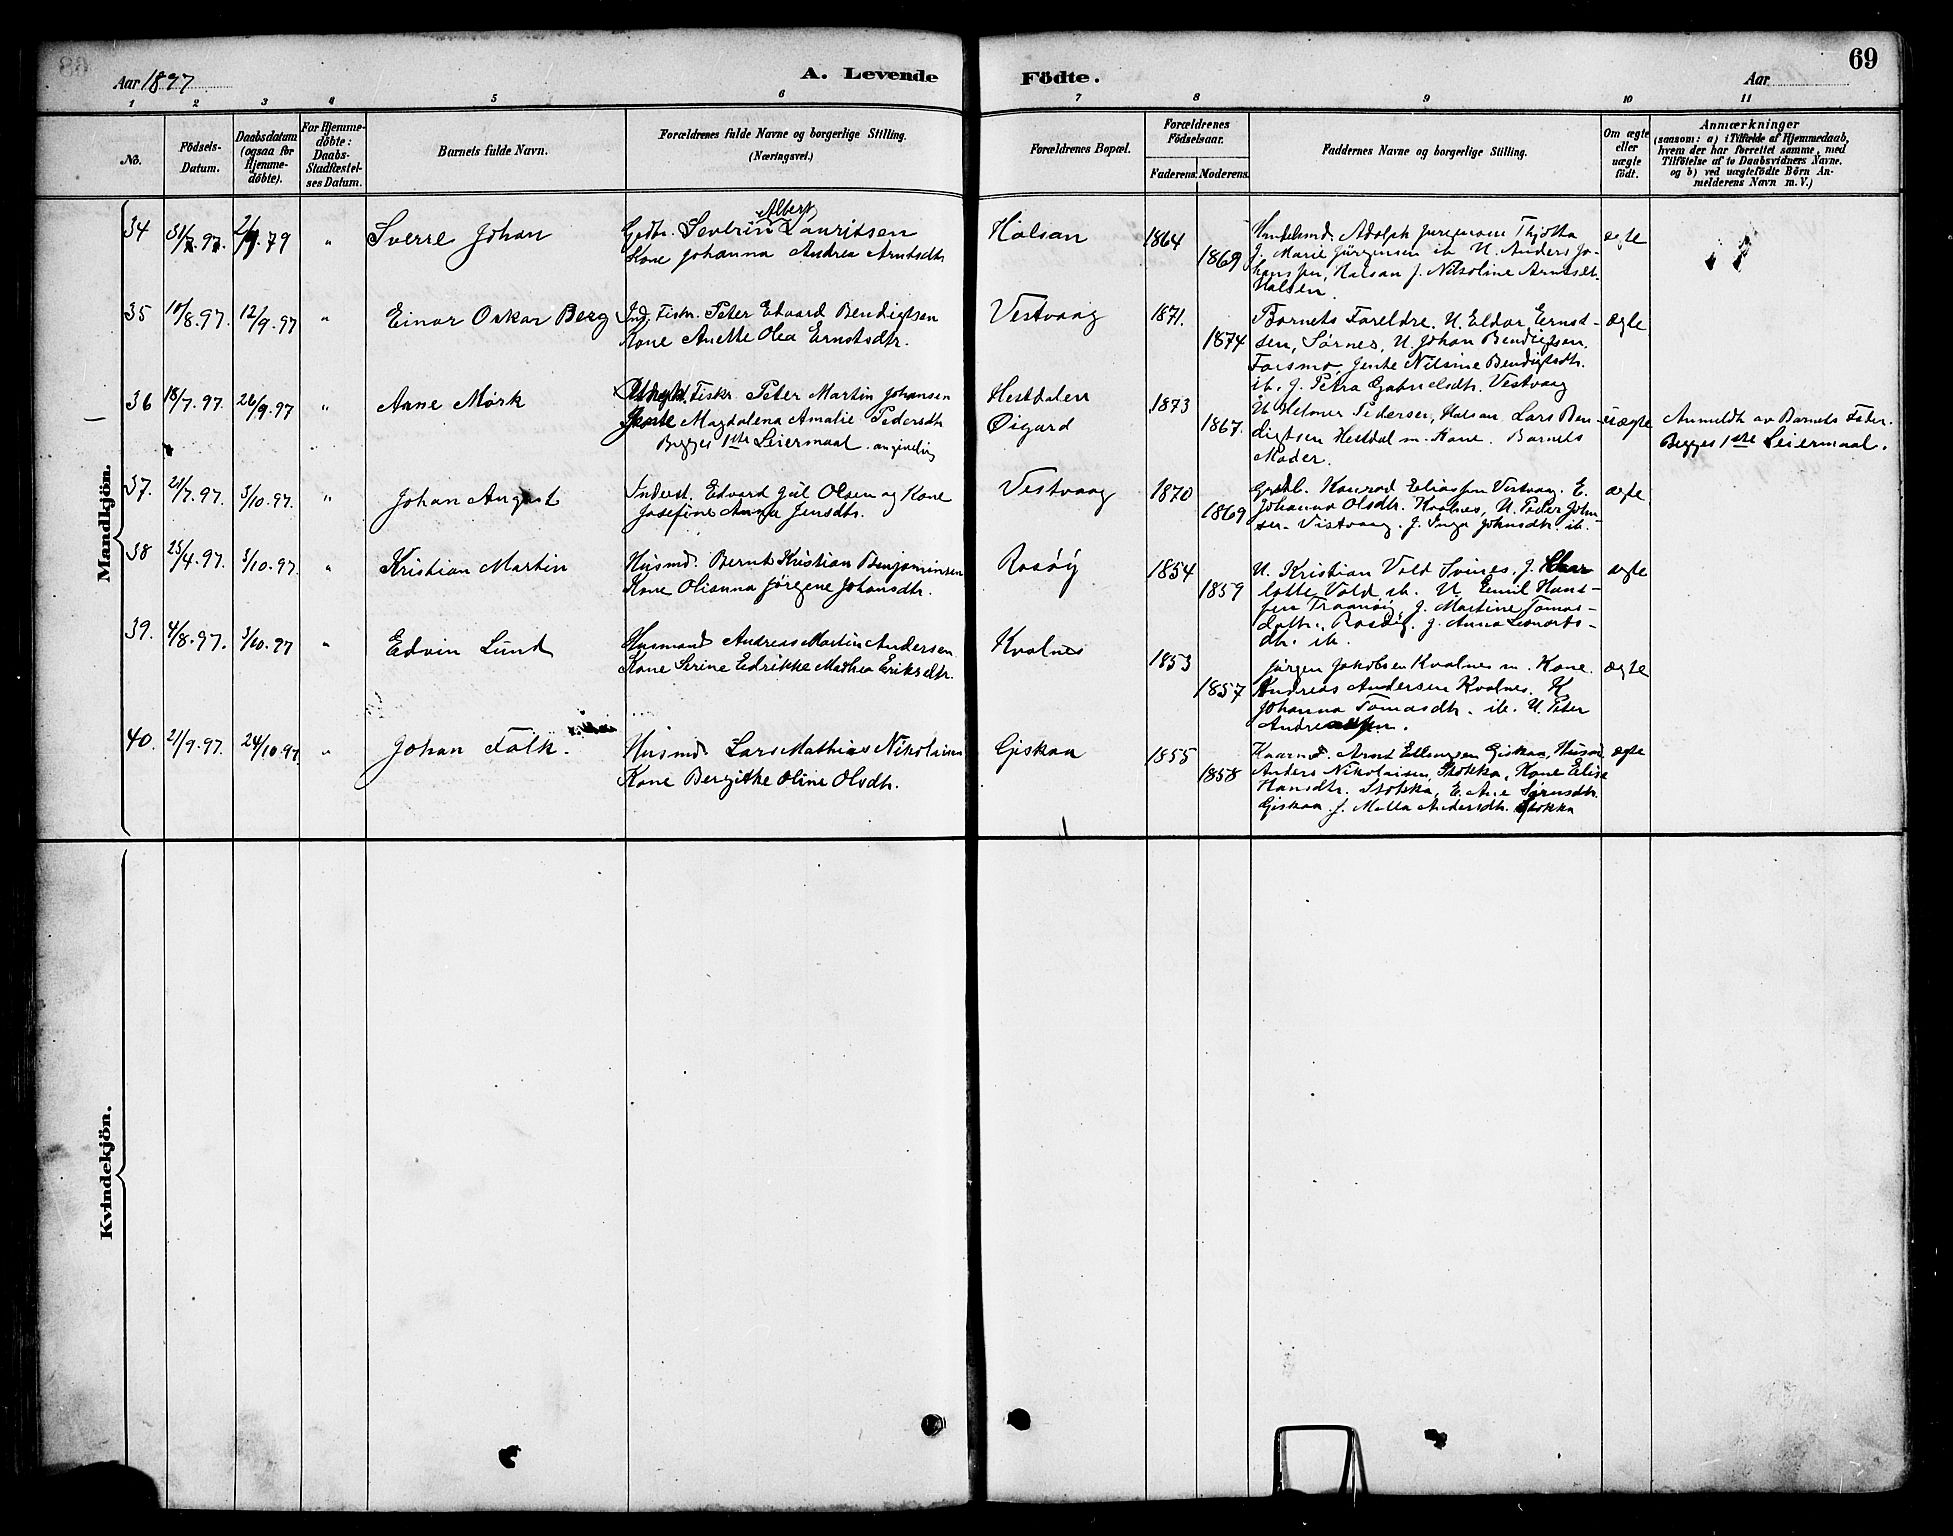 Aar 1897
A. Levende
Födte.
Aar
69
1 2 3 4 5 6 7 8 9 10 11
No.
Födsels-Datum.
Daabsdatum (ogsaa for Hjemmedöbte).
For Hjemmedöbte: Daabs-Stadfæstelses Datum.
Barnets fulde Navn.
Forældrenes fulde Navne og borgerlige Stilling.
(Næringsvei.)
Forældrenes Bopæl.
Forældrenes Födselsaar.
Faderens. Moderens.
Faddernes Navne og borgerlige Stilling.
Om ægte eller uægte födt.
Anmærkninger
(saasom: a) i Tilfælde af Hjemmedaab,
hvem der har forrettet samme, med
Tilföielse af to Daabsvidners Navne.
og b) ved uægtefödte Börn An-
melderens Navn m. V.)
Mandkjön.
34 31/7.97. 2/9.79 " Sverre Johan
Albert
Gdbr. Severin Lauritsen
Kone Johanna Andrea Arntsdtr
Halsan
1864
1869
Adolph Thjötta
J. Marie Jürgensen ib. U. Anders Jo-
hanssen, Halsan J. Nikoline Arntsdt.
Halsen.
ægte
35 10/8.97. 12/9.97 " Einar Oskar Berg
Ind. Fiskr. Peter Edvard Bendigtsen
Kone Anette Olea Ernstsdtr.
Vestvaag
1871.
1874
Barnets Foreldre. U. Eldar Ernst-
sen, Sörnes, U. Johan Bendigtsen.
Forsmo, Jente Nilsine Bendigtsdtr.
ib. J. Petra Gabrielsdtr. Vestvaag
ægte
36 18/7.97. 26/9.97 " Arne Mörk
Ungk. Fiskr. Peter Martin Johansen
Jente Magdalena Amalie Pedersdtr
Begges 1ste Leiermaal angivelig
Hestdalen
Öigard
1873
1867.
U. Helmer Pedersen, Halsan Lars Ben-
digtsen Hestdal m. Kone. Barnets
Moder.
uægte
Anmeldt av Barnets Fater.
Begges 1ste Leiermaal.
37. 21/7.97. 3/10.97. " Johan August
Inderst. Edvard Jül Olsen og Kone
Josefine Anna Jensdtr.
Vestvaag
1870
1869
Gaardb. Konrad Eliassen Vestvaag. E.
Johanna Olsdtr. Kvalnes, U. Peder John-
sen Vestvaag. J. Inga Johnsdtr. ib.
ægte
38 25/4.97. 3/10.97. " Kristian Martin
Husmd. Bernt Kristian Benjaminsen
Kone Olianna Jörgene Johansdtr.
Rosöy
1854
1859
U. Kristian Vold Svines, J. Char
lotte Vold ib. U. Emil Hans-
sen Traanöy, J. Martine Tomas-
datt. Rosöy. J. Anna Leonarts-
dtr. ib.
ægte
39. 4/8.97. 3/10.97 " Edvin Lund
Husmand Andreas Martin Andersen
Kone Serine Edrikke Mathea Eriksdtr.
Kvalnes
1853
1857
Jörgen Jakobsen Kvalnes m. Kone.
Andreas Andersen Kvalnes. K
Johanna Tomasdtr. ib. U. Peter
Andreassen.
ægte
40. 21/9.97. 24/10.97. " Johan Falk.
Husmd Lars Mathias Nikolaisen
Kone Bergitke Oline Olsdtr.
Giskaa
1855
1858
Kaarmd. Arnt Ellingsen Giskaa, Husmd
Anders Nikolaisen, Stokka, Kone Elise
Hansdtr. Stokka, E. Ane Sörensdtr.
Giskaa J. Metta Andersdtr. Stokka
ægte
Kvindekjön.